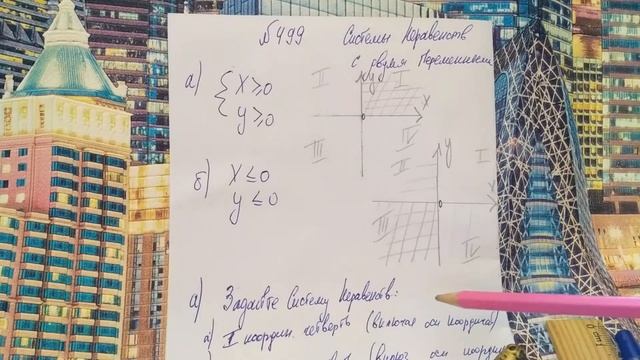 №499 Системы Неравенств
с двумя переменными
а) { x ≥ 0
y ≥ 0
II I
y
x
0
III IV
б) x ≤ 0
y ≤ 0
II I
y
x
0
III IV
а) Задайте систему неравенств:
а) I координ. четверть (включая оси координат)